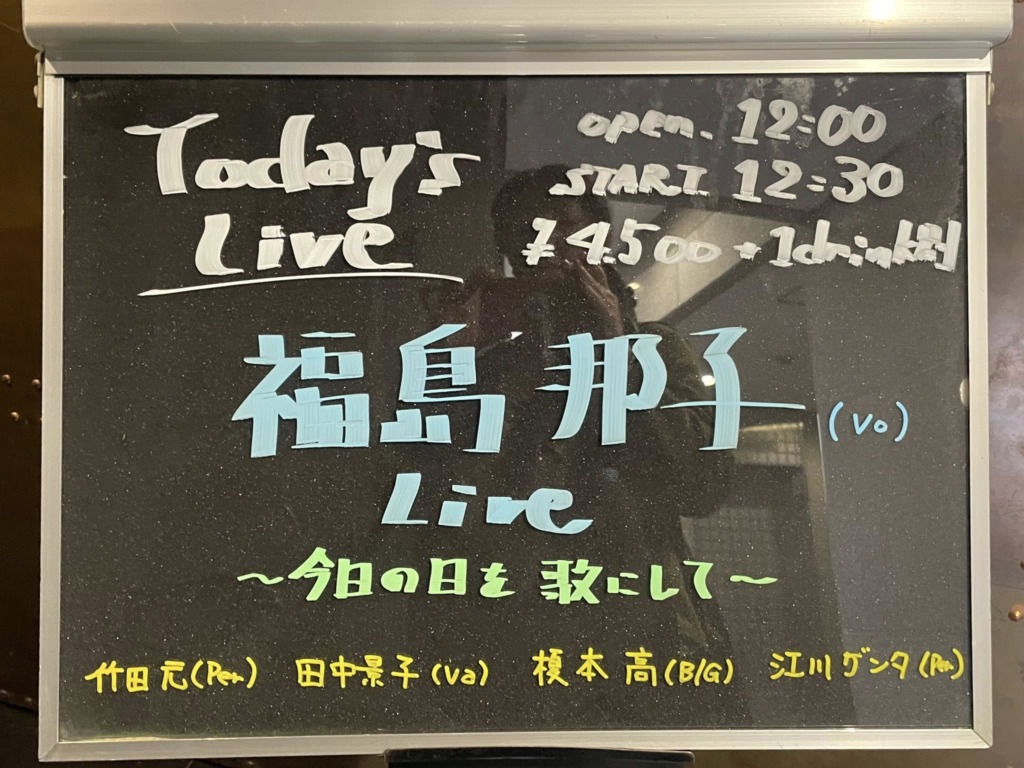 Today's
Live
open. 12:00
START 12:30
¥4.500 + 1drink別
福島 邦子 (Vo)
Live
～今日の日を 歌にして～
竹田 元(Pen) 田中景子(Va) 榎本 高(B/G) 江川ゲンタ(Pen)